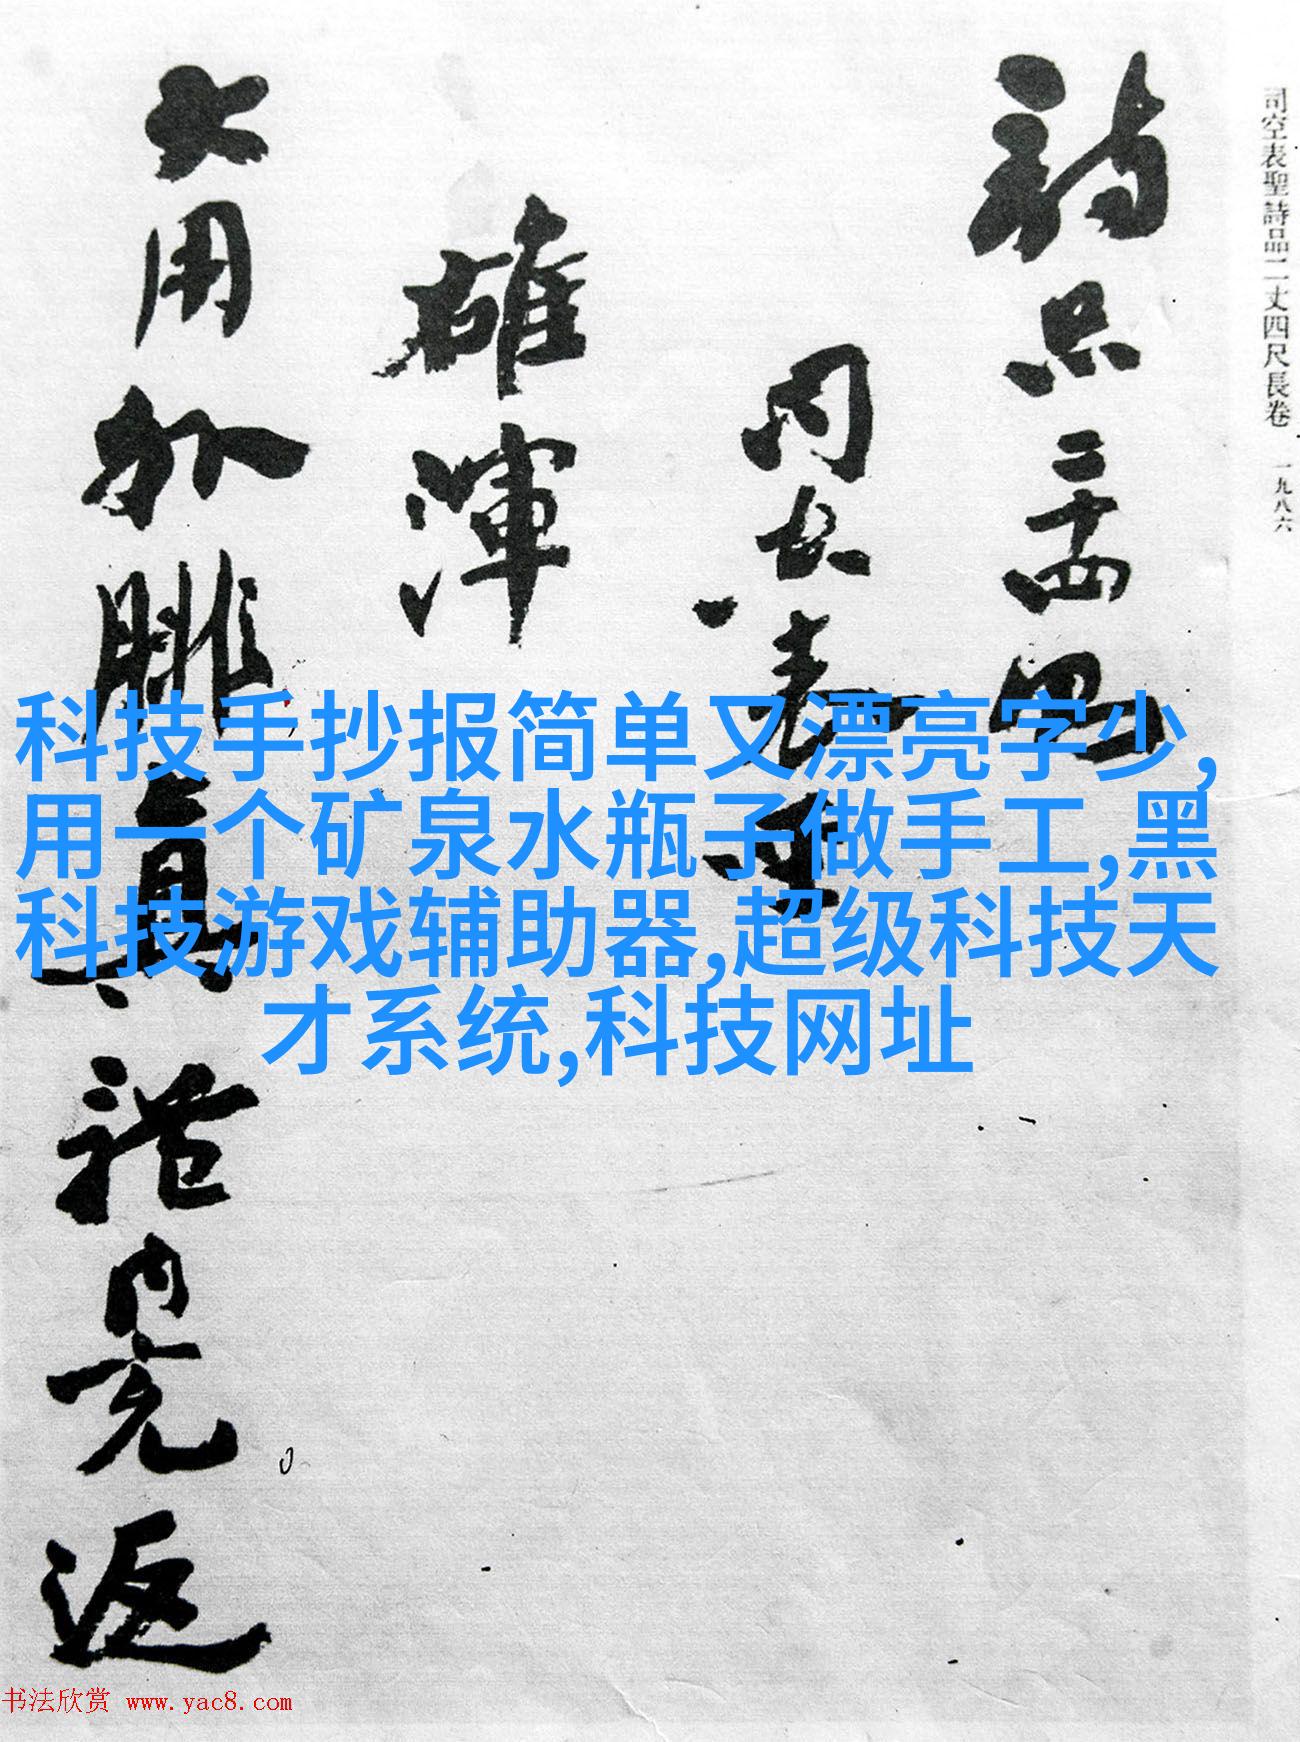 司空表聖詩品二丈四尺長卷 一九八六
詩品二十四則
司空表聖
雄渾
大用外腓真體内充返
科技手抄报简单又漂亮字少,
用一个矿泉水瓶子做手工,黑
科技游戏辅助器,超级科技天
才系统,科技网址
书法欣赏 www.yac8.com